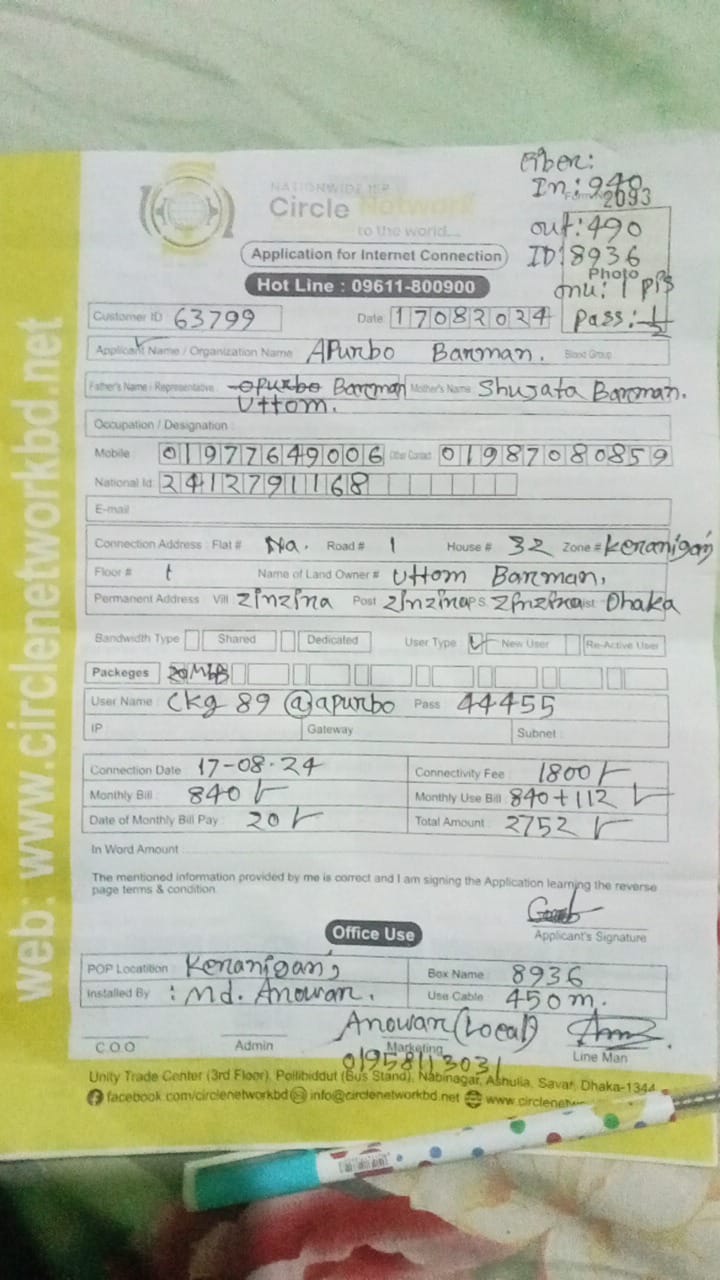 Fiber:
In: 940
2093
NATIONWIDE ISP
Circle Network
to the world...
out: 490
Application for Internet Connection
ID: 8936
Photo
Hot Line : 09611-800900
onu: 1 pis
Customer ID 63799
Date 17082024
Pass:
Applicant Name / Organization Name APurbo Barman. Blood Group
Father's Name / Representative Barman Mother's Name Shujata Barman.
Uttom.
Occupation / Designation
Mobile 01977649006 Other Contact 01987080859
National Id: 2412791168
E-mail
Connection Address : Flat # Na. Road # 1 House # 32 Zone # Keranigonj
Floor # t Name of Land Owner # Uttom Barman,
Permanent Address Vill Zinzira Post Zinzira PS Zinzira Dist Dhaka
Bandwidth Type Shared Dedicated User Type New User Re-Active User
Packeges 20Mbb
User Name : Ckg 89 @apurbo Pass 44455
IP Gateway Subnet
Connection Date 17-08-24 Connectivity Fee 1800/-
Monthly Bill : 840/- Monthly Use Bill 840+112/-
Date of Monthly Bill Pay : 20/- Total Amount : 2752/-
In Word Amount
The mentioned information provided by me is correct and I am signing the Application learning the reverse
page terms & condition
Applicant's Signature
Office Use
POP Locatition : Keranigonj Box Name 8936
Installed By : Md. Anowar. Use Cable 450m.
Anowar (Local)
COO Admin Marketing Line Man
01958113031
Unity Trade Center (3rd Floor), Pollibiddut (Bus Stand), Nabinagar, Ashulia, Savar, Dhaka-1344
facebook.com/circlenetworkbd info@circlenetworkbd.net www.circlenetw
web: www.circlenetworkbd.net